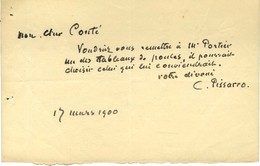 Mon cher Conté
Voudriez vous remettre à Mr Portier
un des tableaux de , il pourrait
choisir celui qui lui conviendrait.
votre dévoué
C. Pissarro.
17 mars 1900